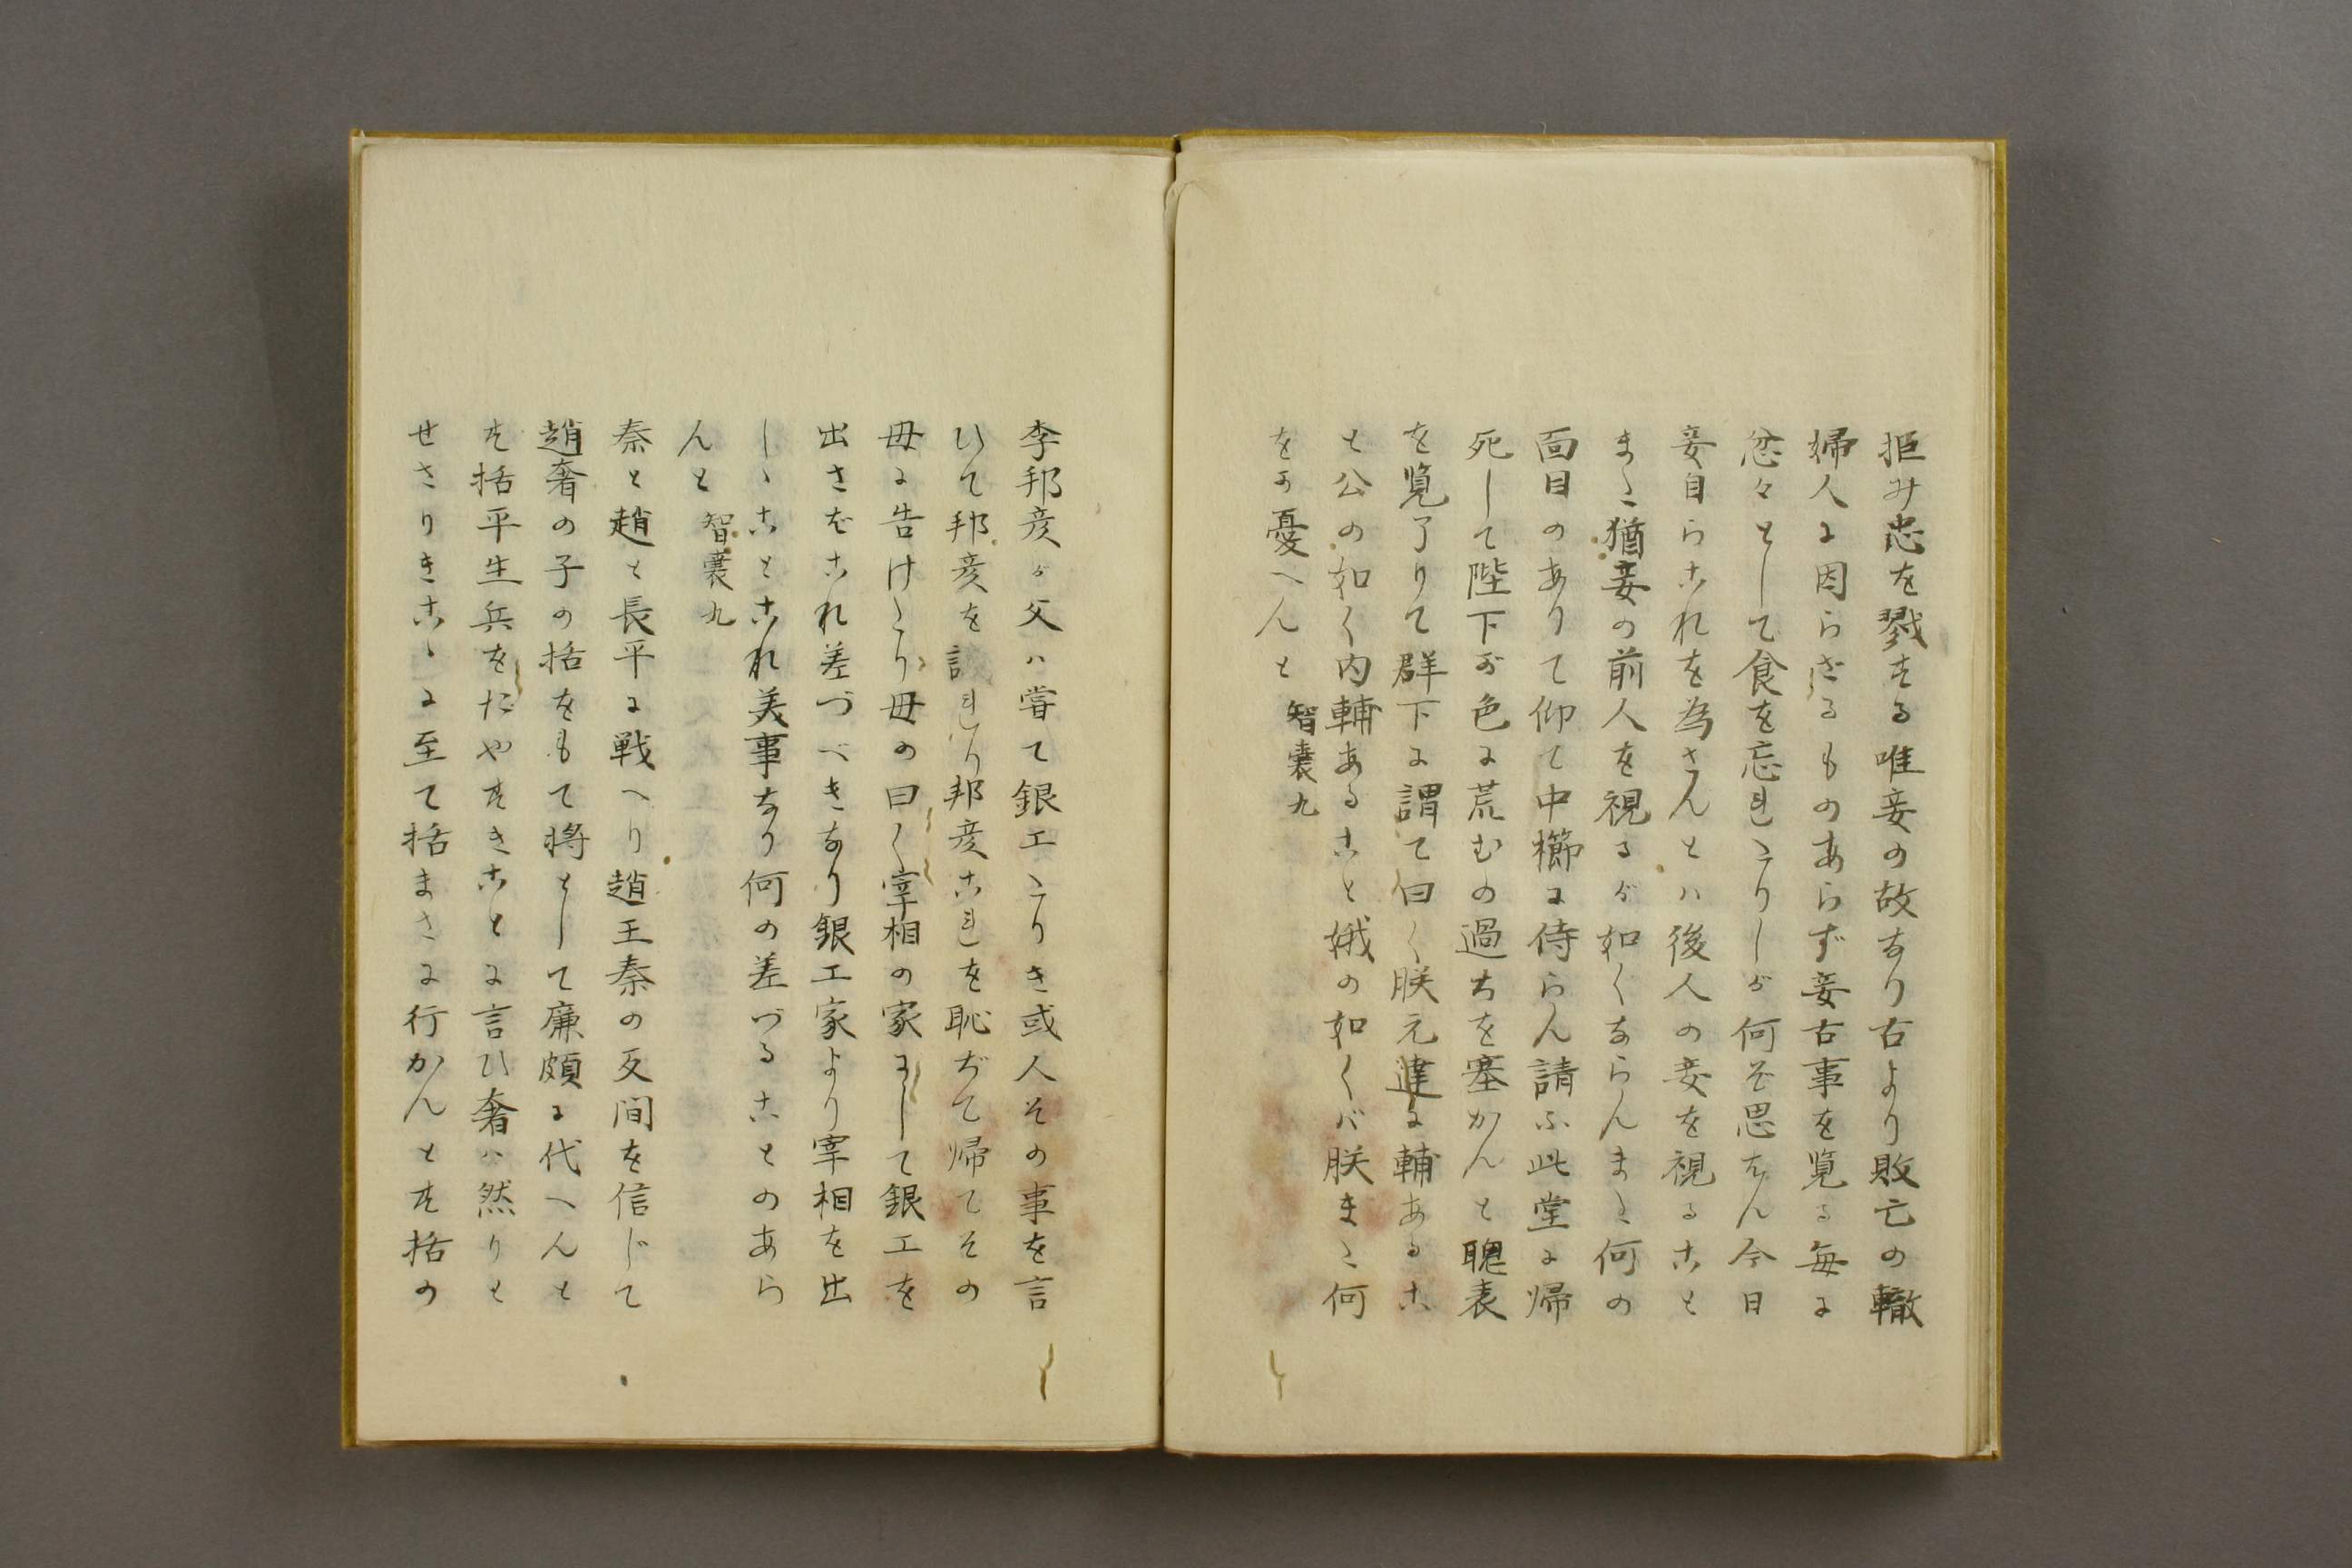 拒み忠を戮する唯妾の故なり古より敗亡の轍
婦人に因らざるものあらず妾古事を覧る毎に
忿々として食を忘れたりしが何ぞ思はん今日
妾自らこれを為さんとハ後人の妾を視ること
また猶妾の前人を視るが如くならんまた何の
面目のありて仰て中櫛に侍らん請ふ此堂に帰
死して陛下が色に荒むの過ちを塞かんと聰表
を覧了りて群下に謂て曰く朕元達に輔あるこ
と公の如く内輔あること娥の如くバ朕また何
をか憂へんと 智囊九
李邦彦が父ハ嘗て銀工たりき或人その事を言
ひて邦彦を譏れり邦彦これを恥ぢて帰てその
母に告けたり母の曰く宰相の家にして銀工を
出さばこれ羞づべきなり銀工家より宰相を出
しゝことこれ美事なり何の羞づることのあら
んと 智囊九
秦と趙と長平に戦へり趙王秦の反間を信じて
趙奢の子の括をもて将として廉頗に代へんと
す括平生兵をたやすきことに言ひ奢ハ然りと
せさりきこゝに至て括まさに行かんとす括の